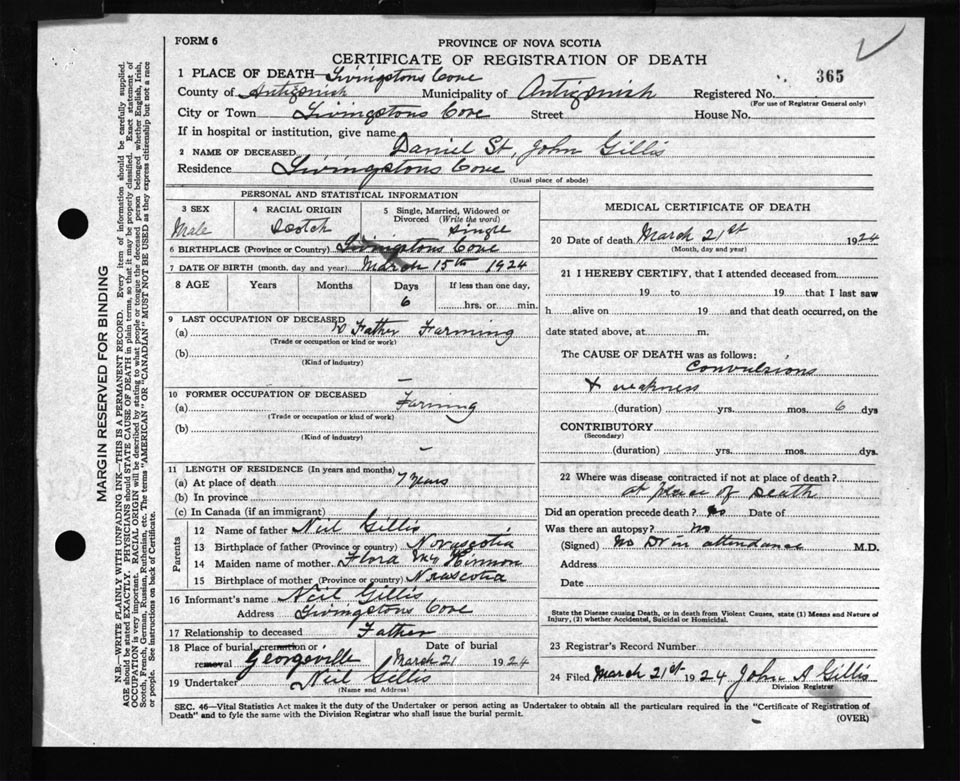 FORM 6
PROVINCE OF NOVA SCOTIA
CERTIFICATE OF REGISTRATION OF DEATH
365
1 PLACE OF DEATH—Livingstons Cove
County of Antigonish Municipality of Antigonish Registered No.
(For use of Registrar General only)
City or Town Livingstons Cove Street House No.
If in hospital or institution, give name
2 NAME OF DECEASED Daniel St. John Gillis
Residence Livingstons Cove
(Usual place of abode)
PERSONAL AND STATISTICAL INFORMATION
3 SEX 4 RACIAL ORIGIN 5 Single, Married, Widowed or Divorced (Write the word)
Male Scotch Single
6 BIRTHPLACE (Province or Country) Livingstons Cove
7 DATE OF BIRTH (month, day and year) March 15th 1924
8 AGE Years Months Days If less than one day,
6 hrs. or min.
9 LAST OCCUPATION OF DECEASED
(a) Father Farming
(Trade or occupation or kind or work)
(b)
(Kind of industry)
10 FORMER OCCUPATION OF DECEASED
(a) Farming
(Trade or occupation or kind of work)
(b)
(Kind of industry)
11 LENGTH OF RESIDENCE (In years and months)
(a) At place of death 7 years
(b) In province
(c) In Canada (if an immigrant)
Parents
12 Name of father Neil Gillis
13 Birthplace of father (Province or country) Novascotia
14 Maiden name of mother Flora McKinnon
15 Birthplace of mother (Province or country) Novascotia
16 Informant's name Neil Gillis
Address Livingstons Cove
17 Relationship to deceased Father
18 Place of burial, cremation or removal Georgeville Date of burial March 21 1924
19 Undertaker Neil Gillis
(Name and Address)
MEDICAL CERTIFICATE OF DEATH
20 Date of death March 21st 1924
(Month, day and year)
21 I HEREBY CERTIFY, that I attended deceased from
19 to 19 that I last saw
h alive on 19 and that death occurred, on the
date stated above, at m.
The CAUSE OF DEATH was as follows:
Convulsions
+ weakness
(duration) yrs. mos. 6 dys
CONTRIBUTORY
(Secondary)
(duration) yrs. mos. dys.
22 Where was disease contracted if not at place of death?
at place of Death
Did an operation precede death? No Date of
Was there an autopsy? No
(Signed) No Dr in attendance M.D.
Address
Date
State the Disease causing Death, or in death from Violent Causes, state (1) Means and Nature of
Injury, (2) whether Accidental, Suicidal or Homicidal.
23 Registrar's Record Number
24 Filed March 21st 1924 John A Gillis
Division Registrar
SEC. 46—Vital Statistics Act makes it the duty of the Undertaker or person acting as Undertaker to obtain all the particulars required in the "Certificate of Registration of
Death" and to fyle the same with the Division Registrar who shall issue the burial permit.
(OVER)
MARGIN RESERVED FOR BINDING
N.B.—WRITE PLAINLY WITH UNFADING INK—THIS IS A PERMANENT RECORD. Every item of information should be carefully supplied.
AGE should be stated EXACTLY. PHYSICIANS should STATE CAUSE OF DEATH in plain terms, so that it may be properly classified. Exact statement of
OCCUPATION is very important. RACIAL ORIGIN will be described by stating to what people or tongue the deceased person belonged whether English, Irish,
Scotch, French, German, Russian, Ruthenian, etc. The terms "AMERICAN" OR "CANADIAN" MUST NOT BE USED as they express citizenship but not a race
or people. See instructions on back of Certificate.